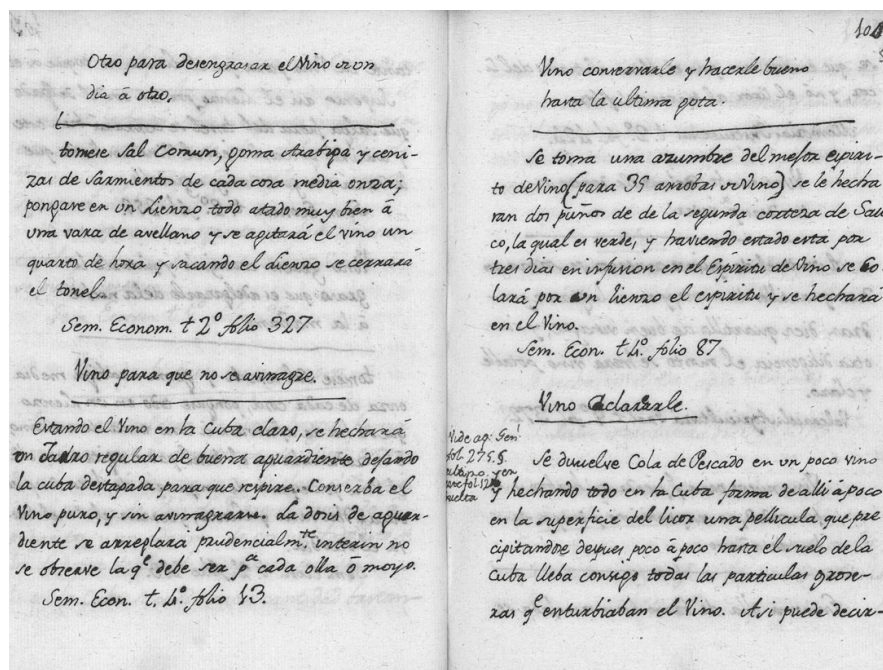 Otro para desengrasar el Vino de un
dia â otro.
tomese Sal Comun, goma Arabiga y ceni-
zas de Sarmientos de cada cosa media onza;
pongase en un Lienzo todo atado muy bien â
una vara de avellano y se agitará el vino un
quarto de hora y sacando el Lienzo se cerrará
el tonel.
Sem. Econom. t 2º folio 327
Vino para que no se avinagre.
Estando el Vino en la Cuba claro, se hechará
un Jarro regular de buena aguardiente dejando
la cuba destapada para que respire. Conserba el
Vino puro, y sin avinagrarse. La dosis de aguar-
diente se arreglará prudencialm.te interin no
se observe la q.e debe ser p.a cada olla ô moyo.
Sem. Econ. t. 4º folio 13.
Vino conservarle y hacerle bueno
hasta la ultima gota.
Se toma una azumbre del mejor espiri-
to de Vino (para 35 arrobas de Vino) se le hecha
ran dos puños de de la segunda corteza de Sau
co, la qual es verde, y haviendo estado esta por
tres dias en infusion en el Espiritu de Vino se co
lará por un lienzo el espiritu y se hechará
en el Vino.
Sem. Econ. t 4º. folio 87
Vino aclararle.
Vide ag: Gen.l
fol. 275. §.
ultimo.
fol. 12
vuelta
Se disuelve Cola de Pescado en un poco vino
y hechando todo en la Cuba forma de alli â poco
en la superficie del licor una pellicula que pre
cipitandose despues poco â poco hasta el suelo de la
Cuba lleba consigo todas las particulas grose-
ras q.e enturbiaban el Vino. Asi puede decir-